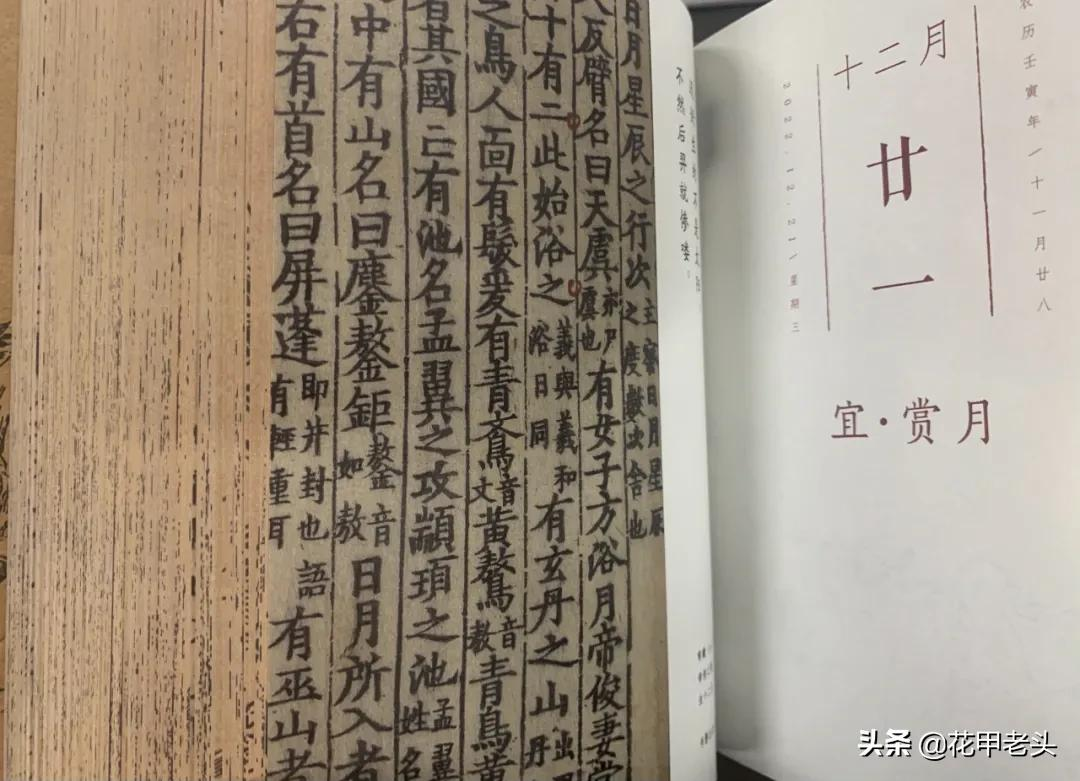 农历壬寅年一十一月廿八
十二月
廿一
2022.12.21\星期三
宜·赏月
还好生的不是太阳
不然后羿就傻喽。
日月星辰之行次主察日月星辰之度數次舍也
人反臂名曰天虞亦尸虞也有女子方浴月帝俊妻常
十有二此始浴之義與羲和浴日同有玄丹之山出黑丹
之鳥人面有髮爰有青鴍音文黃鷔音敖青鳥黃
者其國亡有池名孟翼之攻顓頊之池孟翼姓名
中有山名曰鏖鏊鉅鏊音如敖日月所入者
右有首名曰屏蓬即并封也語有輕重耳有巫山者
头条 @花甲老头